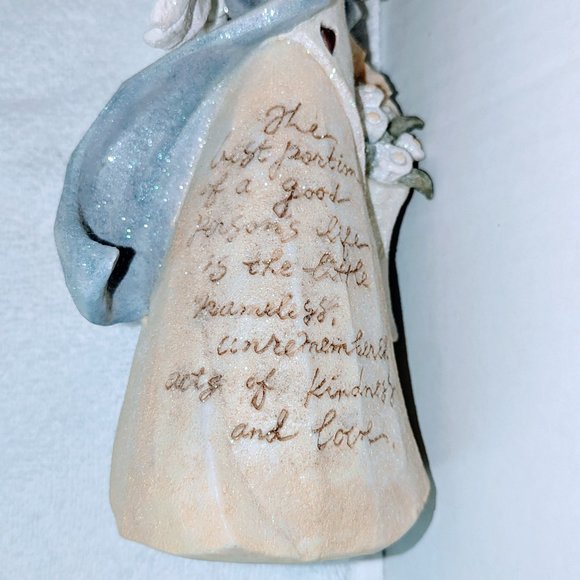 The
best portion
of a good
persons life
is the little
nameless,
unremembered
acts of Kindness
and love.